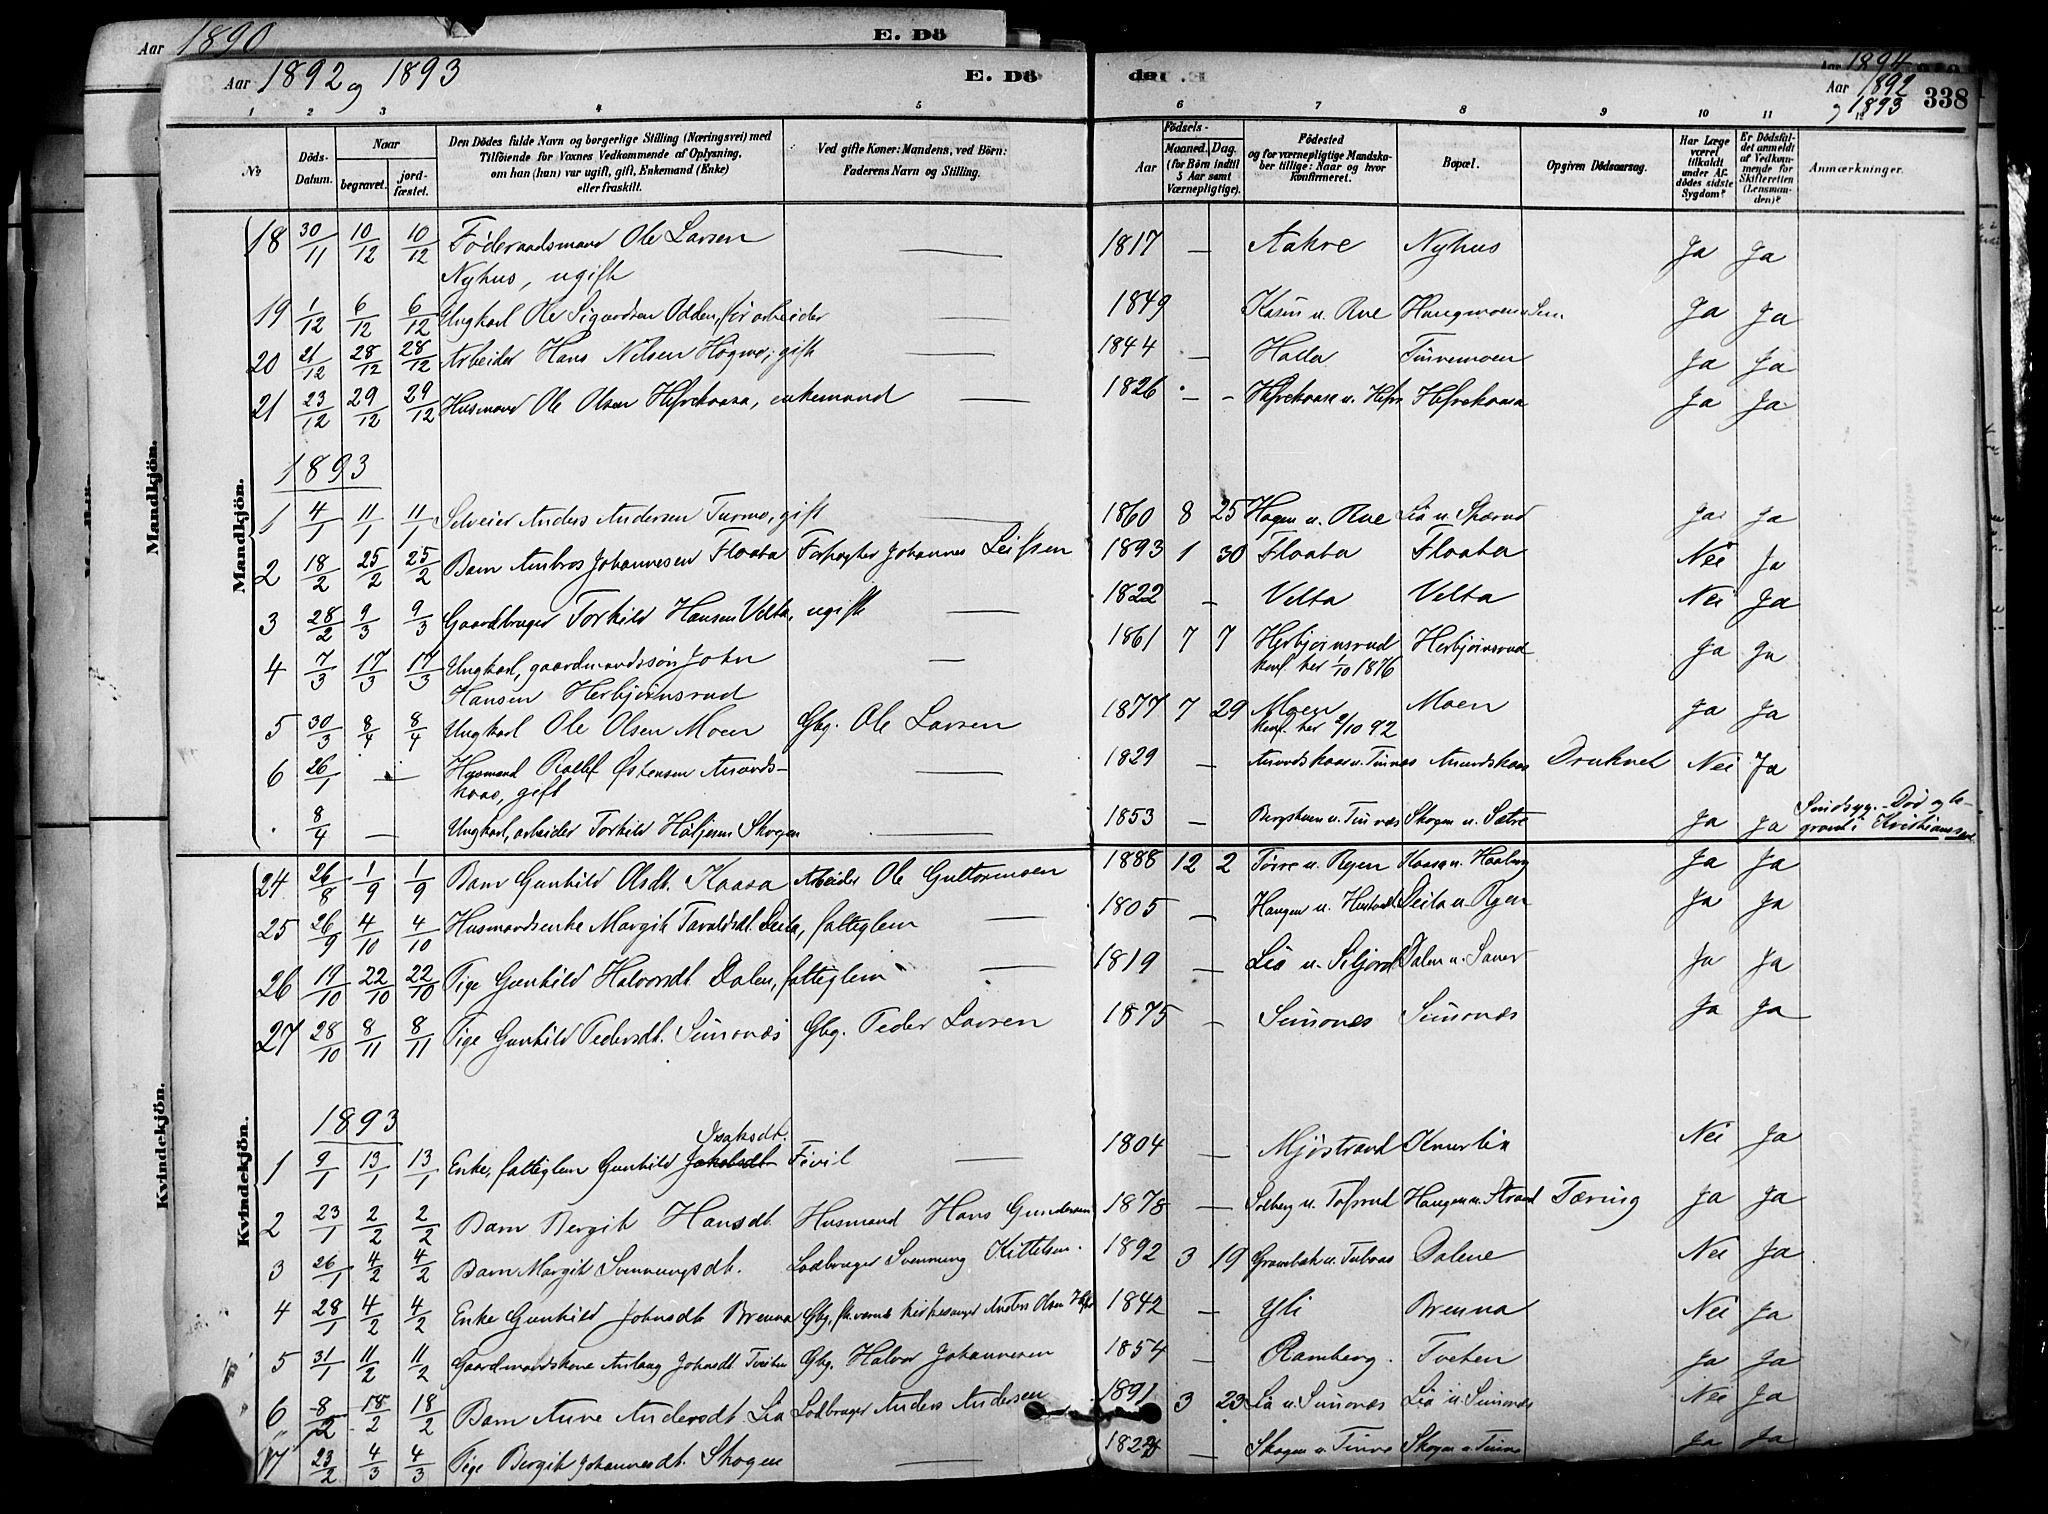 Aar 1890 E. Dö
Aar 1892 og 1893 E. Dö
de E.
Aar 1894
Aar 1892
og 1893 338
1 2 3 4 5 6 7 8 9 10 11 12
№
Döds-Datum.
Naar
begravet. jord-fæstet.
Den Dödes fulde Navn og borgerlige Stilling (Næringsvei) med
Tilföiende for Voxnes Vedkommende af Oplysning,
om han (hun) var ugift, gift, Enkemand (Enke)
eller fraskilt.
Ved gifte Koner: Mandens, ved Börn:
Faderens Navn og Stilling.
Födsels-
Aar Maaned. Dag.
(for Börn indtil
5 Aar samt
Værnepligtige).
Födested
og for værnepligtige Mandska-
ber tillige: Naar og hvor
konfirmeret.
Bopæl.
Opgiven Dödsaarsag.
Har Læge
været
tilkaldt
under Af-
dödes sidste
Sygdom?
Er Dödsfal-
det anmeldt
af Vedkom-
mende for
Skifteretten
(Lensman-
den)?
Anmærkninger.
Mandkjön.
18 30/11 10/12 10/12 Föderaadsmand Ole Larsen — 1817 — Aakre Nyhus Ja Ja
Nyhus, ugift
19 1/12 6/12 6/12 Ungkarl Ole Sigurdsen Odden, för arbeider — 1849 Ja Ja
20 21/12 28/12 28/12 Arbeider Hans Nilsen Högmo, gift — 1844 — Holla Tinnemoen Ja Ja
21 23/12 29/12 29/12 Husmand Ole Olsen Hefrekaasa, enkemand — 1826 — — Hefrekaasa Ja Ja
1893
1 4/1 11/1 11/1 Selveier Anders Andersen Turmo, gift — 1860 8 25 Hagen u. Rue Lia u. Ja Ja
2 18/2 25/2 25/2 Barn Ambros Johannesen Flaata Forpagter Johannes Leifsen 1893 1 30 Flaata Flaata Nei Ja
3 28/2 9/3 9/3 Gaardbruger Torkild Hansen Velta, ugift — 1822 — Velta Velta Nei Ja
4 7/3 17/3 17/3 Ungkarl, gaardmandssön John — 1861 7 7 Herbjörnsrud Herbjörnsrud Ja Ja
Hansen Herbjörnsrud konf. her 1/10 1876
5 30/3 8/4 8/4 Ungkarl Ole Olsen Moen Gbg. Ole Larsen 1877 7 29 Moen Moen Ja Ja
konf. her 2/10 92
6 26/1 — — Husmand Rollef Østensen Amunds- — 1829 — Amundskaas u. Tinnæs Amundskaas Druknet Nei Ja
kaas, gift
8/4 — Ungkarl, arbeider Torkild Skogen — 1853 — u. Tinnæs Skogen u. Sætre Ja Ja Sindsyg. Död og be-
gravet i Kristianssand
Kvindekjön.
24 26/8 1/9 1/9 Barn Gunhild Olsdt. Kaasa Arbeider Ole Guttormsen 1888 12 2 u. Ryen Kaasa u. Haaberg Ja Ja
25 26/9 4/10 4/10 Husmandsenke Margit Taraldsdt. Deila, fattiglem — 1805 — Haugen u. Deila u. Ryen Ja Ja
26 19/10 22/10 22/10 Pige Gunhild Halvorsdt. Dalen, fattiglem — 1819 — Lia u. Seljord Dalen u. Ja Ja
27 28/10 8/11 8/11 Pige Gunhild Pedersdt. Simonæs Gbg. Peder Larsen 1875 — Simonæs Simonæs Ja Ja
1893
Isaksdt.
1 9/1 13/1 13/1 Enke, fattiglem Gunhild Jakobsdt. — 1804 — Mjöstrand Nei Ja
2 23/1 2/2 2/2 Barn Bergit Hansdt. Husmand Hans Gundersen 1878 — Solberg u. Haugen u. Strand Tæring Ja Ja
3 26/1 4/2 4/2 Barn Margit Svennungsdt. Lodbruger Svennung Kittelsen 1892 3 19 Dalene Nei Ja
4 28/1 4/2 4/2 Enke Gunhild Johnsdt. Brenna Gbg., kirkesanger Anders Olsen 1842 — Yli Brenna Nei Ja
5 31/1 11/2 11/2 Gaardmandskone Aslaug Johnsdt. Tveten Gbg. Halvor Johannesen 1854 — Ramberg. Tveten Ja Ja
6 8/2 18/2 18/2 Barn Anne Andersdt. Lia Lodbruger Anders Andersen 1891 3 23 Lia u. Simonæs Lia u. Simonæs Nei Ja
7 23/2 4/3 4/3 Pige Bergit Johannesdt. Skogen — — Skogen u. Tinne Skogen u. Tinne Ja Ja
Mandkjön.
Kvindekjön.